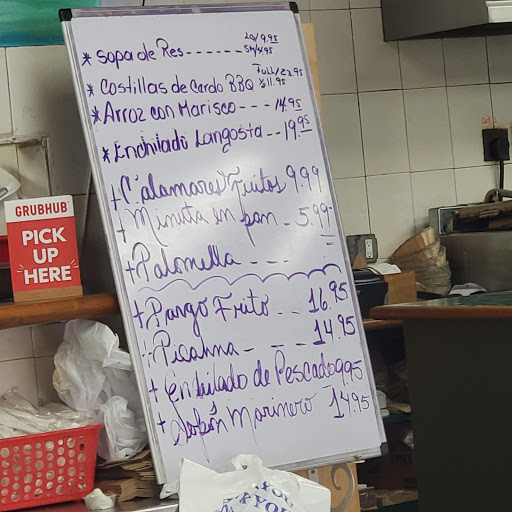 * Sopa de Res------ LG/9.95
SM/4.95
* Costillas de Cerdo BBQ FULL/22.95
½ 11.95
* Arroz con Marisco---- 14.95
* Enchilado Langosta -- 19.95
+ Calamares Fruitos 9.99
+ Minuta en pan - 5.99
+ Palomella - - - -
+ Pargo Frito - - 16.95
+ Picanna - - - - 14.95
+ Enhilado de Pescado 9.95
+ Marinero - 14.95
GRUBHUB
PICK
UP
HERE